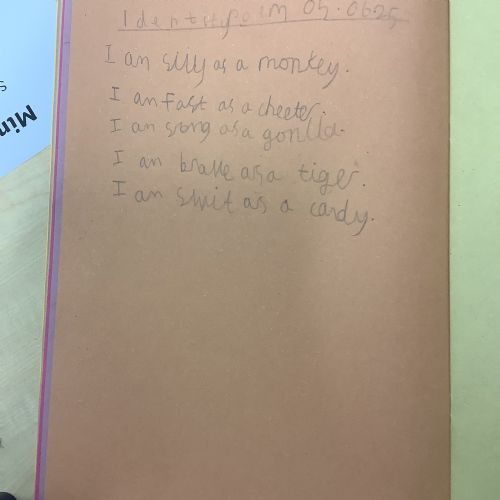 Identity Poem 05.0625
I an silly as a monkey.
I an Fast as a cheeter.
I an srong as a gorilla.
I an brave as a tiger.
I an swit as a candy.
Min
s